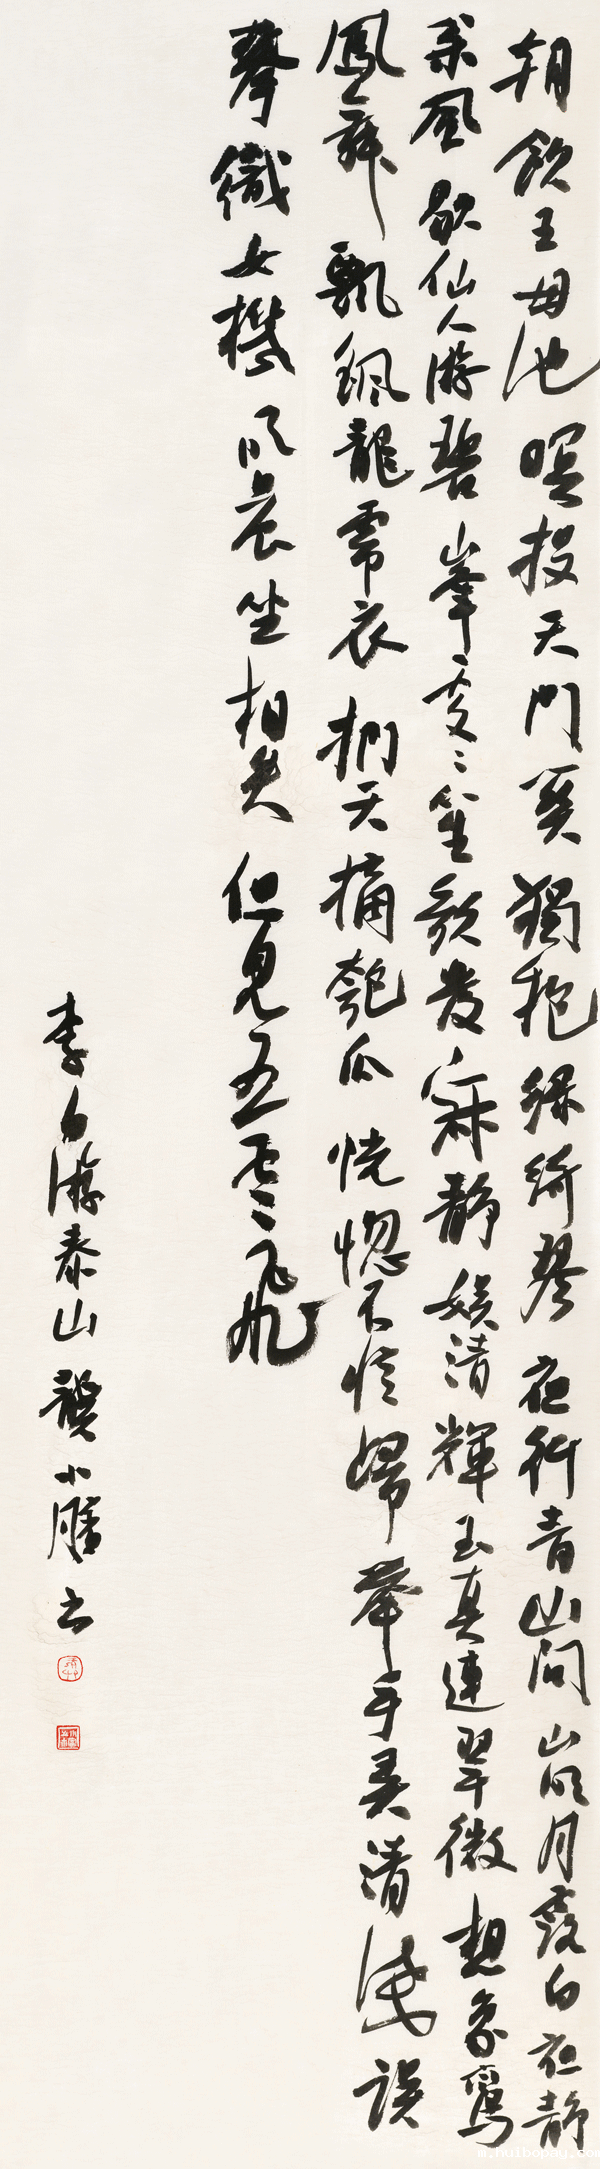 朝飲王母池暝投天門關獨抱綠綺琴夜行青山間山明月露白夜靜
松風歇仙人游碧峯處々笙歌發寂靜娛清輝玉真連翠微想象鸞
鳳舞飄颻龍虎衣捫天摘匏瓜恍惚不憶歸舉手弄清淺誤
攀織女機明晨坐相失但見五雲飛
李白游泰山 龔小 书
m.huibopay.com